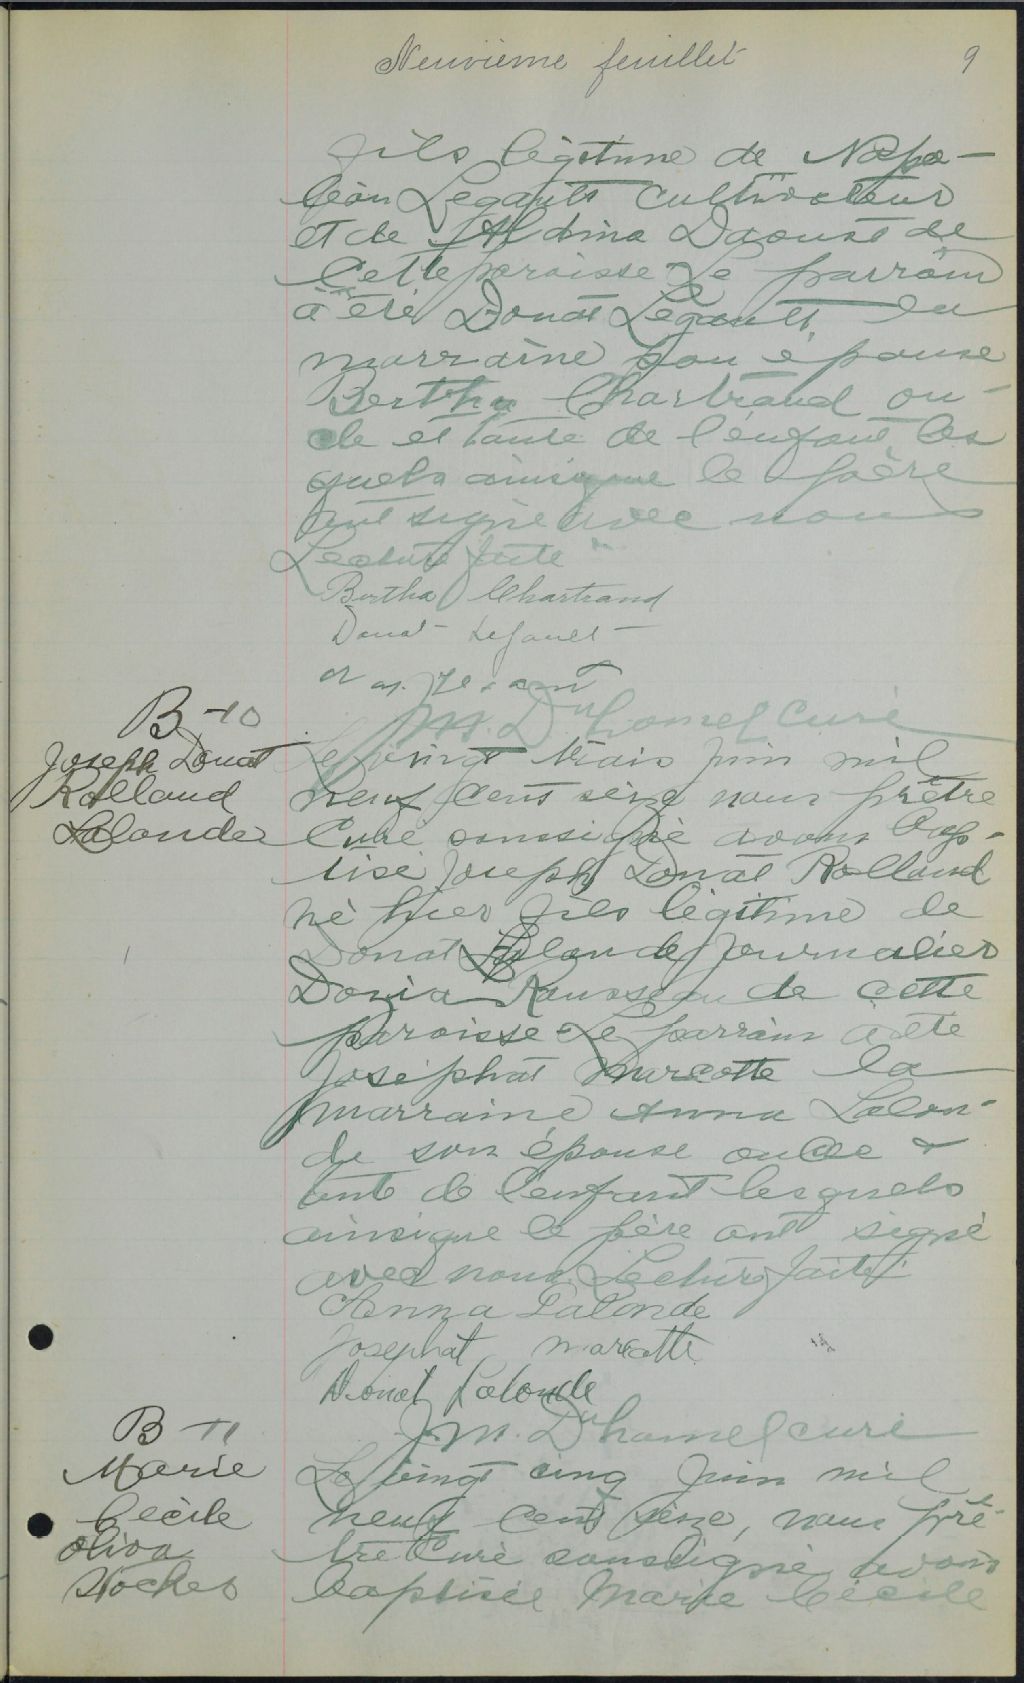 Neuvième feuillet 9
fils légitime de Napo-
léon Legault cultivateur
et de Aldina Daoust de
cette paroisse Le parrain
a été Donat Legault, la
marraine son épouse
Bertha Chartrand on-
cle et tante de l'enfant les
quels ainsique le père
ont signé avec nous
Lecture faite
Bertha Chartrand
Donat Legault
J. M. Duhamel curé
B-10
Joseph Donat
Rolland
Lalonde
Le vingt trois juin mil
neuf cent seize nous prêtre
Curé soussigné avons bap-
tisé Joseph Donat Rolland
né hier fils légitime de
Donat Lalonde journalier
Doria Rousseau de cette
paroisse Le parrain a été
Josephat Marcotte la
marraine Anna Lalon-
de son épouse oncle &
tante de l'enfant lesquels
ainsique le père ont signé
avec nous. Lecture faite.
Anna Lalonde
Josephat Marcotte
Donat Lalonde
J. M. Duhamel curé
B-11
Marie
Cécile
Oliva
Le vingt cinq juin mil
neuf cent seize, nous prê-
tre Curé soussigné avons
baptisée Marie Cécile